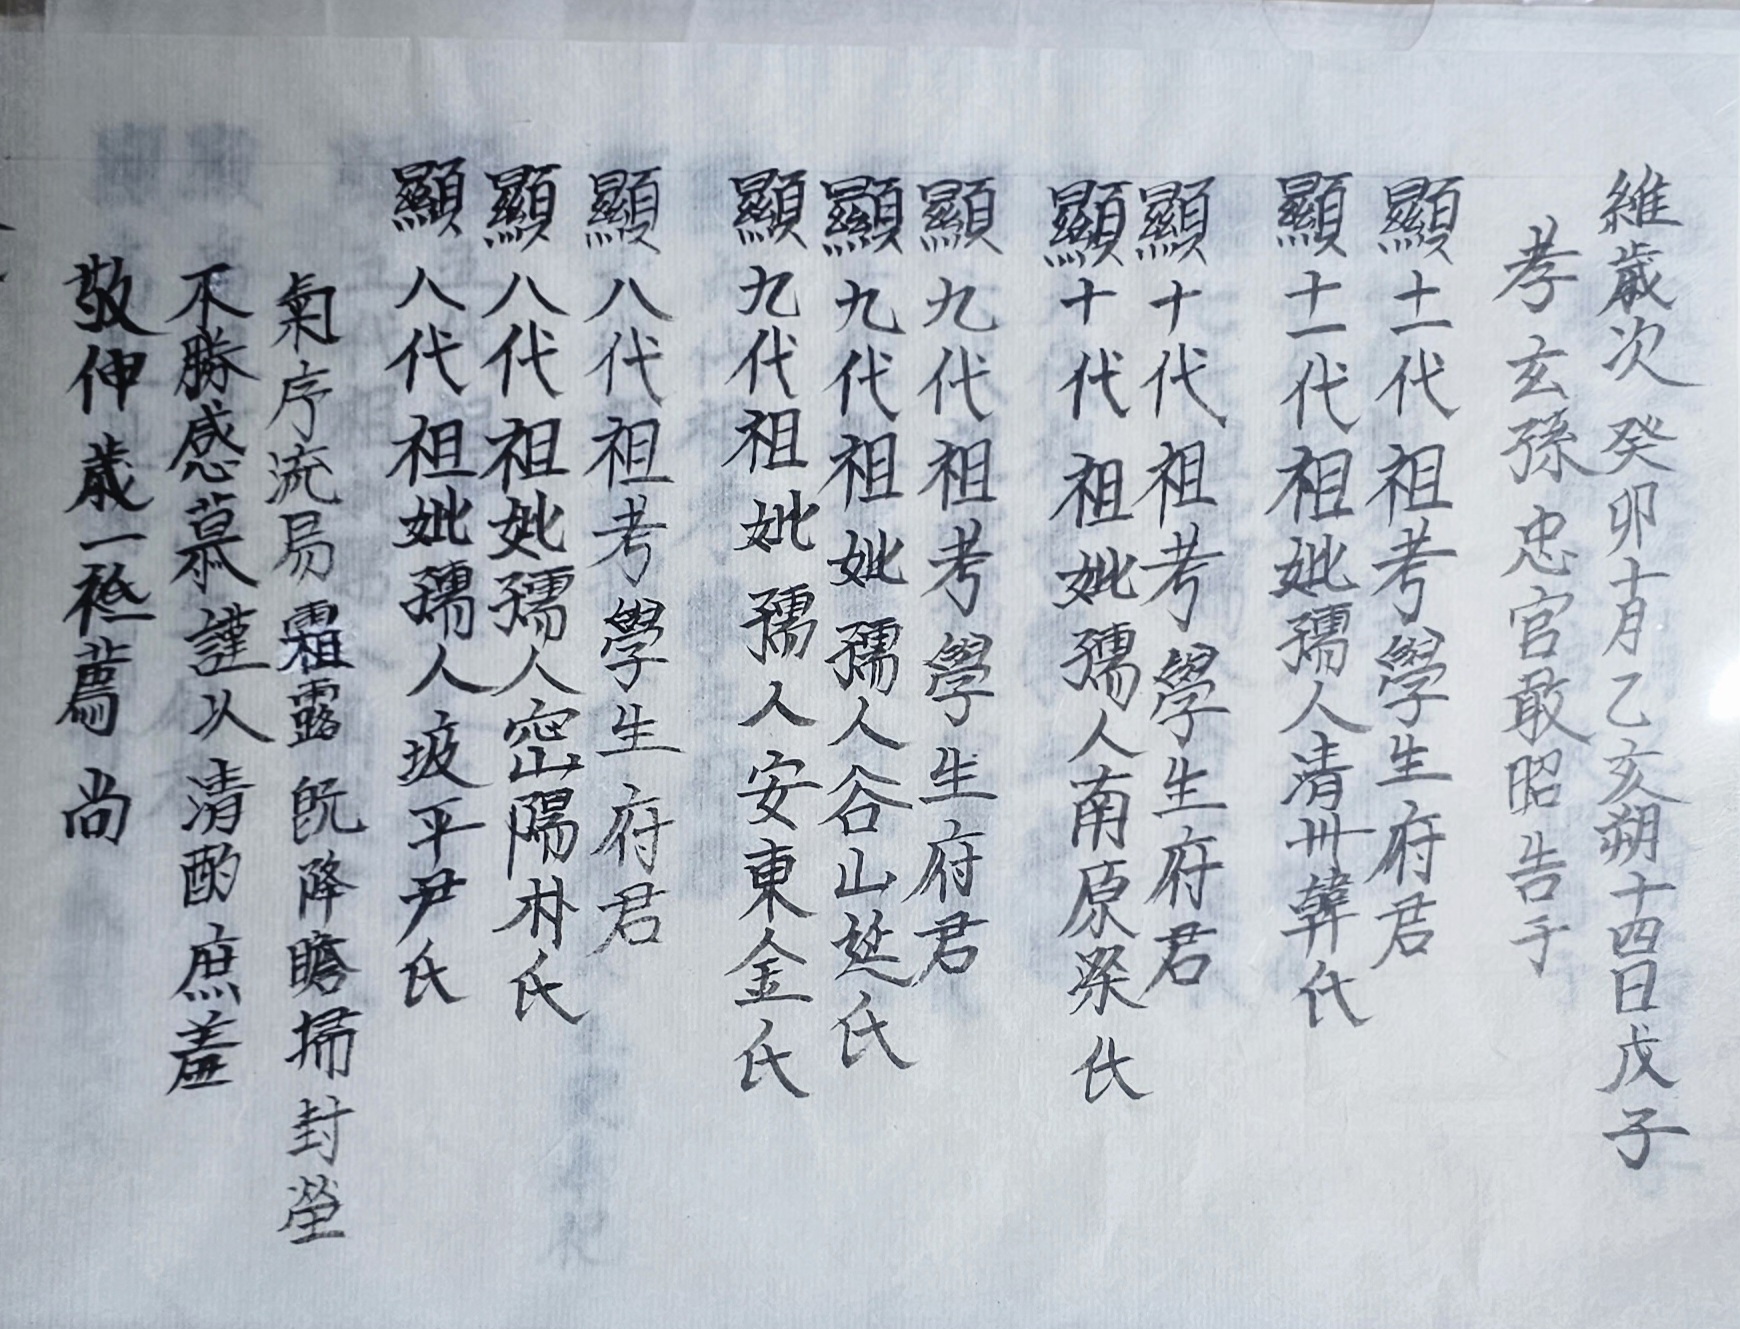 維歲次癸卯十月乙亥朔十四日戊子
孝玄孫忠官敢昭告于
顯十一代祖考學生府君
顯十一代祖妣孺人清州韓氏
顯十代祖考學生府君
顯十代祖妣孺人南原梁氏
顯九代祖考學生府君
顯九代祖妣孺人谷山延氏
顯九代祖妣孺人安東金氏
顯八代祖考學生府君
顯八代祖妣孺人密陽朴氏
顯八代祖妣孺人坡平尹氏
氣序流易霜露旣降瞻掃封塋
不勝感慕謹以清酌庶羞
敬伸歲一祗薦尚